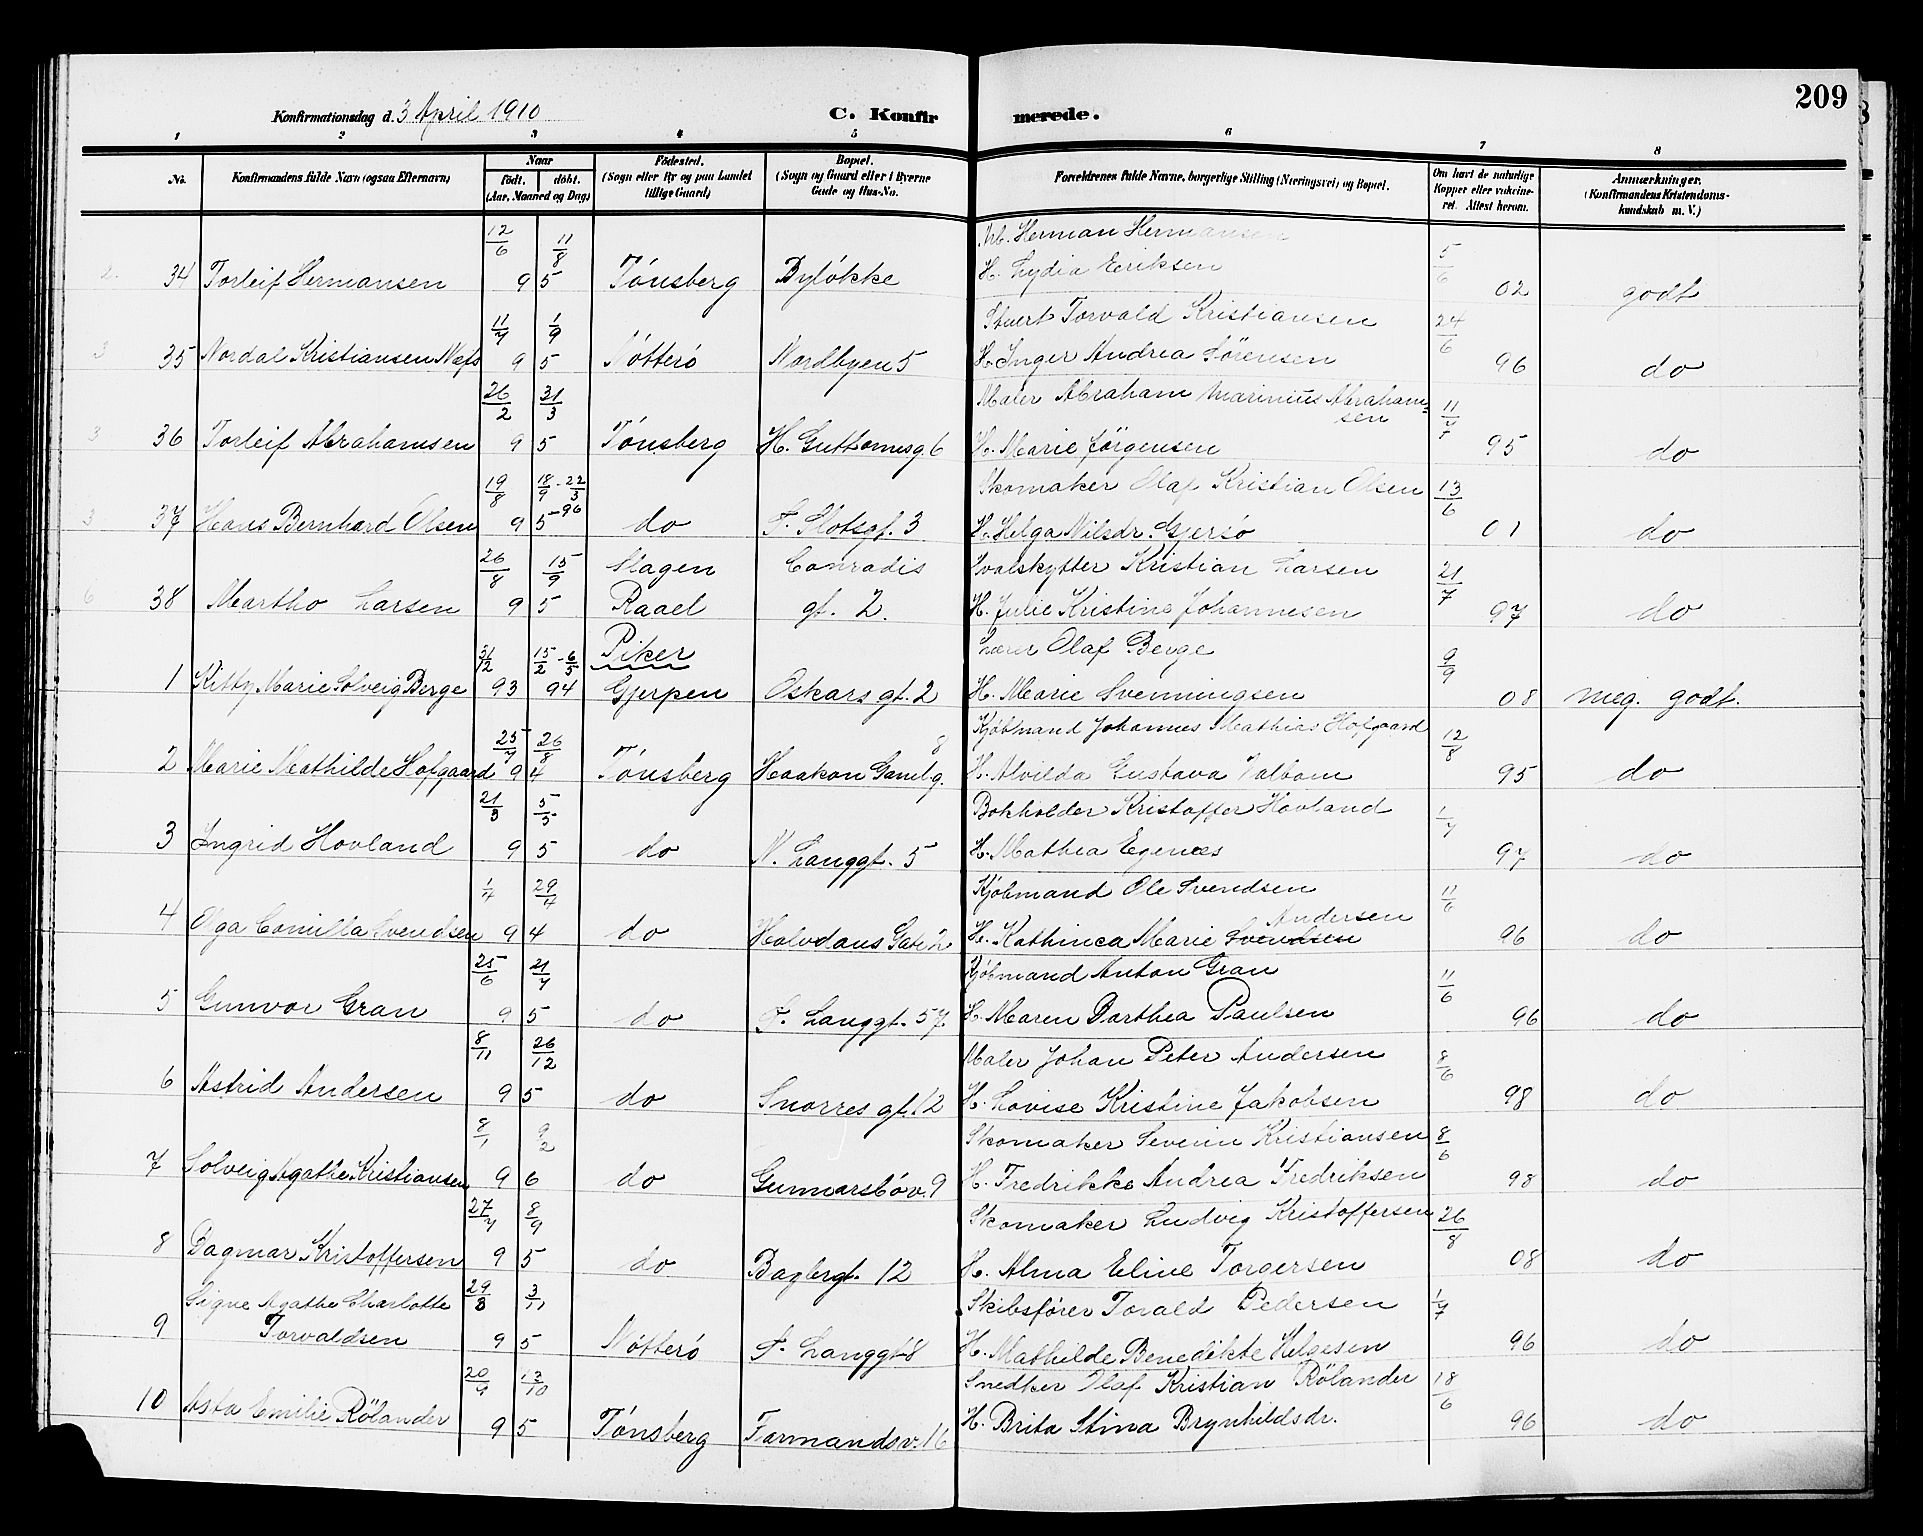 209
Konfirmationsdag d. 3 April 1910
C. Konfirmerede.
1 2 3 4 5 6 7 8
No.
Konfirmandens fulde Navn (ogsaa Efternavn)
Naar
født. døbt.
(Aar, Maaned og Dag)
Fødested.
(Sogn eller By og paa Landet
tillige Gaard)
Bopæl.
(Sogn og Gaard eller i Byerne
Gade og Hus-No.
Forældrenes fulde Navne, borgerlige Stilling (Næringsvei) og Bopæl.
Om havt de naturlige
Kopper eller vakcine-
ret. Attest herom.
Anmærkninger.
(Konfirmandens Kristendoms-
kundskab m. V.)
12/6 11/8 Arb. Herman Hermansen 5/6
2. 34 Torleif Hermansen 9 5 Tønsberg Byløkke H. Lydia Eriksen 02 godt
11/7 1/9 Stuert Torvald Kristiansen 24/6
3 35 Nordal Kristiansen Næss 9 5 Nøtterø Nordbyen 5 H. Inger Andrea Sørensen 96 do
26/2 31/3 Maler Abraham Marinius Abraham-
sen 11/7
3 36 Torleif Abrahamsen 9 5 Tønsberg H. Guttormsg. 6 H. Marie Jørgensen 95 do
19/8 18/9 - 22/3 Skomaker Olaf Kristian Olsen 13/6
3 37 Hans Bernhard Olsen 9 5 - 96 do F. Slotsgt. 3 H. Helga Nilsdr. Gjersø 01 do
26/8 15/9 Slagen Conradis Hvalskytter Kristian Larsen 21/7
6 38 Martho Larsen 9 5 Raael gt. 2. H. Julie Kristine Johannesen 97 do
Piker
31/12 15/2 - 6/5 Lærer Olaf Berge 9/9
1 Kitty Marie Solveig Berge 93 94 Gjerpen Oskars gt. 2 H. Marie Svenningsen 08 meg. godt.
25/7 26/8 8 Kjøbmand Johannes Mathias Hofgaard 12/8
2 Marie Mathilde Hofgaard 9 4 Tønsberg Haakon Gamlg. H. Alvilda Gustava Valbom 95 do
21/3 5/5 Bokholder Kristoffer Hovland 1/7
3 Ingrid Hovland 9 5 do N. Langgt. 5 H. Mathea Egenæs 97 do
1/4 29/4 Kjøbmand Ole Svendsen 11/6
Andersen
4 Olga Camilla Svendsen 9 4 do Halvdans Gate 2 H. Kathinca Marie Svendsen 96 do
25/6 21/7 Kjøbmand Anton Gran 11/6
5 Gunvor Gran 9 5 do F. Langgt. 57. H. Maren Dorthea Paulsen 96 do
8/11 26/12 Maler Johan Peter Andersen 8/6
6 Astrid Andersen 9 5 do Snorres gt. 12 H. Lovise Kristine Jakobsen 98 do
8/1 9/2 Skomaker Severin Kristiansen 8/6
7 Solveig Agathe Kristiansen 9 6 do Gunnarsbøv. 9 H. Fredrikke Andrea Fredriksen 98 do
27/7 8/9 Skomaker Ludvig Kristoffersen 26/8
8 Dagmar Kristoffersen 9 5 do Baglergt. 12 H. Alma Eline Torgersen 08 do
Signe Agathe Charlotte 29/8 3/11 Skibsfører Torald Pedersen 1/7
9 Torvaldsen 9 5 Nøtterø F. Langgt 8 H. Mathilde Benedikte Helgesen 96 do
20/9 13/10 Snedker Olaf Kristian Rölander 18/6
10 Asta Emilie Rölander 9 5 Tønsberg Farmandsv. 16 H. Brita Stina Brynhildsdr. 96 do